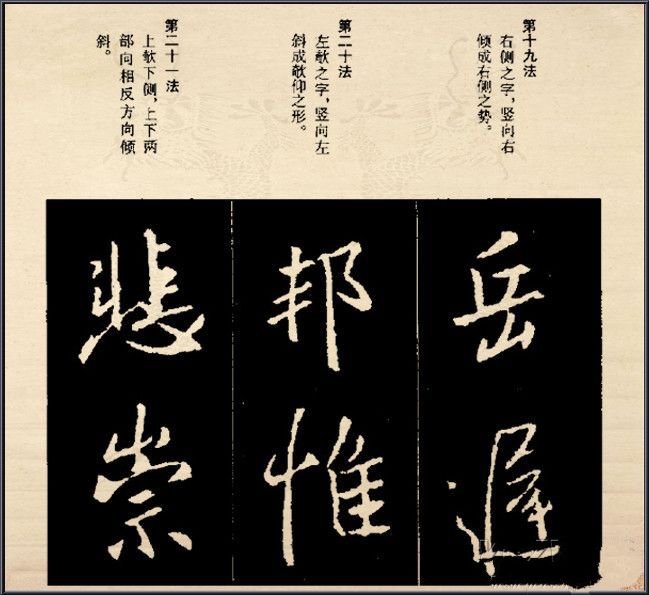 第十九法
右侧之字，竖向右
倾成右侧之势。
第二十法
左欹之字，竖向左
斜成欹仰之形。
第二十一法
上欹下侧，上下两
部向相反方向倾
斜。
岳遲
邦惟
悲崇